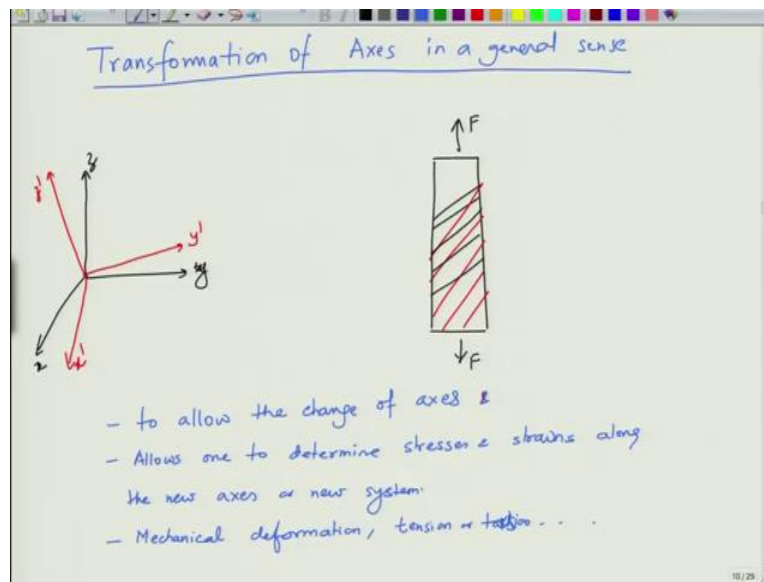 Transformation of Axes in a general sense
F
z
z'
y'
y
x
x'
F
- to allow the change of axes &
- Allows one to determine stresses & strains along
the new axes or new system.
- Mechanical deformation, tension or torsion . . .
10/29